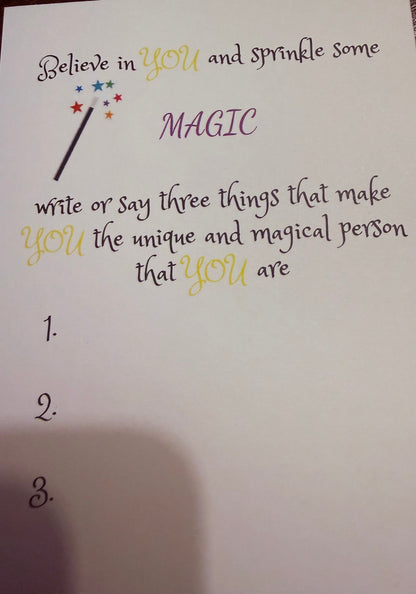 Believe in YOU and sprinkle some
MAGIC
write or say three things that make
YOU the unique and magical person
that YOU are
1.
2.
3.